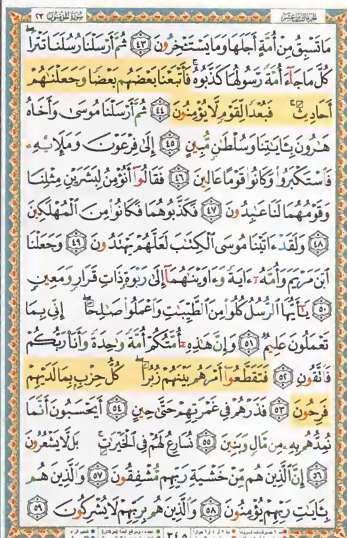 سورة المؤمنون ٢٣
الجزء الثامن عشر
مَا تَسْبِقُ مِنْ أُمَّةٍ أَجَلَهَا وَمَا يَسْتَـْٔخِرُونَ ٤٣ ثُمَّ أَرْسَلْنَا رُسُلَنَا تَتْرَا
كُلَّ مَا جَآءَ أُمَّةً رَّسُولُهَا كَذَّبُوهُ فَأَتْبَعْنَا بَعْضَهُم بَعْضًا وَجَعَلْنَٰهُمْ
أَحَادِيثَ فَبُعْدًا لِّقَوْمٍ لَّا يُؤْمِنُونَ ٤٤ ثُمَّ أَرْسَلْنَا مُوسَىٰ وَأَخَاهُ
هَٰرُونَ بِـَٔايَٰتِنَا وَسُلْطَٰنٍ مُّبِينٍ ٤٥ إِلَىٰ فِرْعَوْنَ وَمَلَإِي۟هِۦ
فَٱسْتَكْبَرُوا۟ وَكَانُوا۟ قَوْمًا عَالِينَ ٤٦ فَقَالُوٓا۟ أَنُؤْمِنُ لِبَشَرَيْنِ مِثْلِنَا
وَقَوْمُهُمَا لَنَا عَٰبِدُونَ ٤٧ فَكَذَّبُوهُمَا فَكَانُوا۟ مِنَ ٱلْمُهْلَكِينَ
٤٨ وَلَقَدْ ءَاتَيْنَا مُوسَى ٱلْكِتَٰبَ لَعَلَّهُمْ يَهْتَدُونَ ٤٩ وَجَعَلْنَا
ٱبْنَ مَرْيَمَ وَأُمَّهُۥٓ ءَايَةً وَءَاوَيْنَٰهُمَآ إِلَىٰ رَبْوَةٍ ذَاتِ قَرَارٍ وَمَعِينٍ
٥٠ يَٰٓأَيُّهَا ٱلرُّسُلُ كُلُوا۟ مِنَ ٱلطَّيِّبَٰتِ وَٱعْمَلُوا۟ صَٰلِحًا إِنِّى بِمَا
تَعْمَلُونَ عَلِيمٌ ٥١ وَإِنَّ هَٰذِهِۦٓ أُمَّتُكُمْ أُمَّةً وَٰحِدَةً وَأَنَا۠ رَبُّكُمْ
فَٱتَّقُونِ ٥٢ فَتَقَطَّعُوٓا۟ أَمْرَهُم بَيْنَهُمْ زُبُرًا كُلُّ حِزْبٍۭ بِمَا لَدَيْهِمْ
فَرِحُونَ ٥٣ فَذَرْهُمْ فِى غَمْرَتِهِمْ حَتَّىٰ حِينٍ ٥٤ أَيَحْسَبُونَ أَنَّمَا
نُمِدُّهُم بِهِۦ مِن مَّالٍ وَبَنِينَ ٥٥ نُسَارِعُ لَهُمْ فِى ٱلْخَيْرَٰتِ بَل لَّا يَشْعُرُونَ
٥٦ إِنَّ ٱلَّذِينَ هُم مِّنْ خَشْيَةِ رَبِّهِم مُّشْفِقُونَ ٥٧ وَٱلَّذِينَ هُم
بِـَٔايَٰتِ رَبِّهِمْ يُؤْمِنُونَ ٥٨ وَٱلَّذِينَ هُم بِرَبِّهِمْ لَا يُشْرِكُونَ ٥٩
٣٤٥